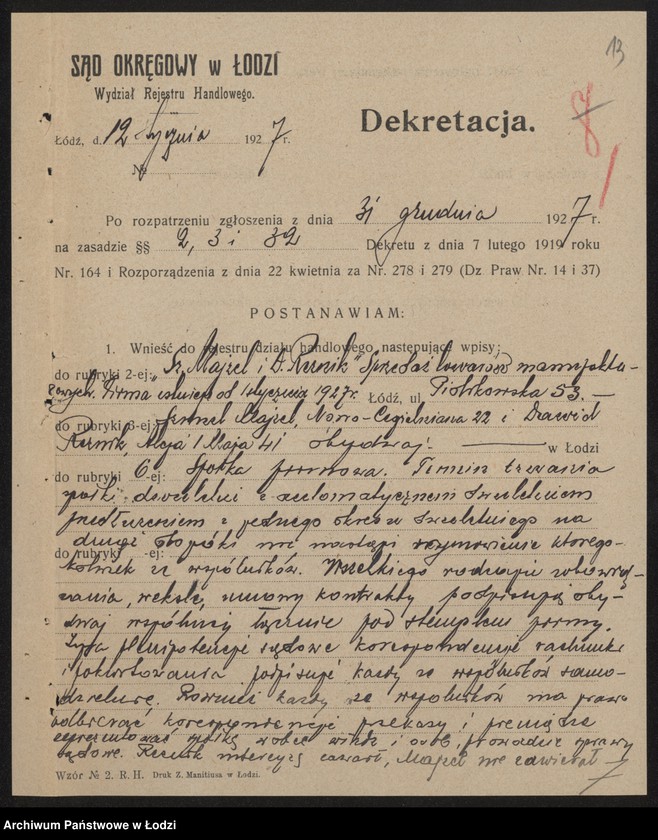 13
SĄD OKRĘGOWY w ŁODZI
Wydział Rejestru Handlowego.
Łódź, d. 12 stycznia 1927 r.
№
Dekretacja.
Po rozpatrzeniu zgłoszenia z dnia 31 grudnia 1927 r.
na zasadzie §§ 2, 3 i 32 Dekretu z dnia 7 lutego 1919 roku
Nr. 164 i Rozporządzenia z dnia 22 kwietnia za Nr. 278 i 279 (Dz Praw Nr. 14 i 37)
POSTANAWIAM:
1. Wnieść do rejestru działu handlowego następujące wpisy:
do rubryki 2-ej: Majzel i D. Reznik" Sprzedaż towarów manufaktu-
rowych. Firma istnieje od 1 stycznia 1927 r. Łódź, ul Piotrkowska 53. —
do rubryki 3-ej: Majzel, Nowo-Cegielniana 22 i Dawid
Reznik, 1 Maja 41 obydwaj — w Łodzi
do rubryki 6-ej: Spółka firmowa. Termin trwania
spółki dwuletni z automatycznem dwuletniem
przedłużeniem z jednego okresu dwuletniego na
drugi dopóki nie nastąpi wymówienie którego-
do rubryki -ej:
kolwiek ze wspólników. Wszelkiego rodzaju zobowią-
zania, weksle, umowy kontrakty podpisują oby-
dwaj wspólnicy łącznie pod stemplem firmy.
plenipotencje sądowe korespondencje rachunki
i pokwitowania podpisuje każdy ze wspólników samo-
dzielnie. Również każdy ze wspólników ma prawo
odbierać korespondencję przekazy i pieniądze
reprezentować spółkę wobec władz i osób, prowadzić sprawy
sądowe. Reznik intercyzę zawarł, Majzel nie zawierał —
Wzór № 2. R. H. Druk Z. Manitiusa w Łodzi.
Archiwum Państwowe w Łodzi